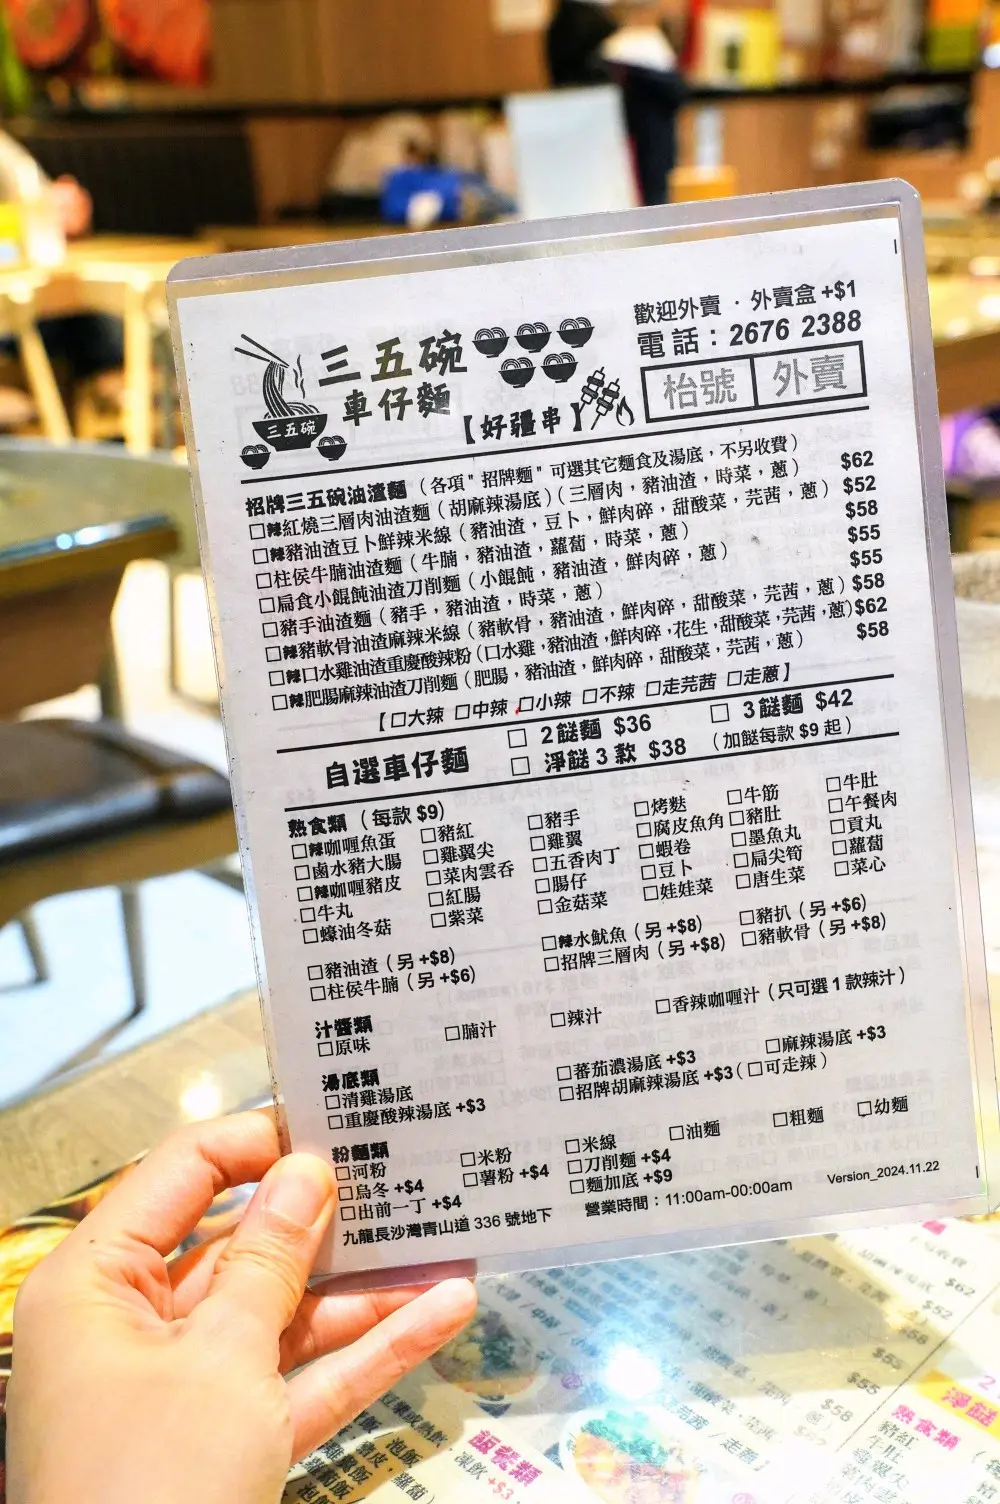 歡迎外賣 · 外賣盒 +$1
電話：2676 2388
枱號 外賣
三五碗
車仔麵
三五碗
【好疆串】
招牌三五碗油渣麵（各項"招牌麵"可選其它麵食及湯底，不另收費）
□辣紅燒三層肉油渣麵（胡麻辣湯底）（三層肉，豬油渣，時菜，蔥） $62
□辣豬油渣豆卜鮮辣米線（豬油渣，豆卜，鮮肉碎，甜酸菜，芫茜，蔥） $52
□柱侯牛腩油渣麵（牛腩，豬油渣，蘿蔔，時菜，蔥） $58
□扁食小餛飩油渣刀削麵（小餛飩，豬油渣，鮮肉碎，蔥） $55
□豬手油渣麵（豬手，豬油渣，時菜，蔥） $55
□辣豬軟骨油渣麻辣米線（豬軟骨，豬油渣，鮮肉碎，甜酸菜，芫茜，蔥） $58
□辣口水雞油渣重慶酸辣粉（口水雞，豬油渣，鮮肉碎，花生，甜酸菜，芫茜，蔥） $62
□辣肥腸麻辣油渣刀削麵（肥腸，豬油渣，鮮肉碎，甜酸菜，芫茜，蔥） $58
【□大辣 □中辣 □小辣 □不辣 □走芫茜 □走蔥】
自選車仔麵
□ 2餸麵 $36 □ 3餸麵 $42
□ 淨餸3款 $38 （加餸每款 $9 起）
熟食類（每款 $9）
□辣咖喱魚蛋 □豬紅 □豬手 □烤麩 □牛筋 □牛肚
□鹵水豬大腸 □雞翼尖 □雞翼 □腐皮魚角 □豬肚 □午餐肉
□辣咖喱豬皮 □菜肉雲吞 □五香肉丁 □蝦卷 □墨魚丸 □貢丸
□牛丸 □紅腸 □腸仔 □豆卜 □扁尖筍 □蘿蔔
□蠔油冬菇 □紫菜 □金菇菜 □娃娃菜 □唐生菜 □菜心
□豬油渣（另 +$8） □辣水魷魚（另 +$8） □豬扒（另 +$6）
□柱侯牛腩（另 +$6） □招牌三層肉（另 +$8） □豬軟骨（另 +$8）
汁醬類
□原味 □腩汁 □辣汁 □香辣咖喱汁（只可選 1 款辣汁）
湯底類
□清雞湯底 □蕃茄濃湯底 +$3 □麻辣湯底 +$3
□重慶酸辣湯底 +$3 □招牌胡麻辣湯底 +$3（□可走辣）
粉麵類
□河粉 □米粉 □米線 □油麵 □粗麵 □幼麵
□烏冬 +$4 □薯粉 +$4 □刀削麵 +$4
□出前一丁 +$4 □麵加底 +$9
九龍長沙灣青山道 336 號地下 營業時間：11:00am-00:00am Version_2024.11.22
$62
$52
$58
$55
$55
$58
淨餸
熟食類
豬紅
牛肚
飯餐類
凍飲 +$3